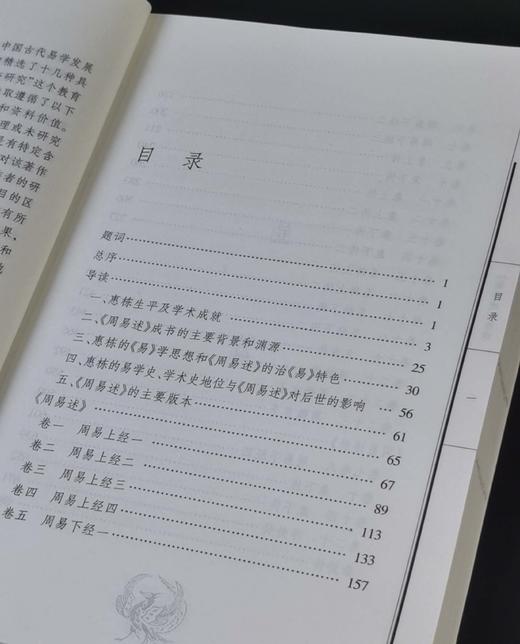 中国古代易学发展
精选了十几种具
研究”这个教育
取遵循了以下
和资料价值。
理或未研究
是有特定含
对该著作
者的研
目的区
有所
果，
和
地
目 录
题词 …… 1
总序 …… 1
导读 …… 1
一、惠栋生平及学术成就 …… 3
二、《周易述》成书的主要背景和渊源 …… 25
三、惠栋的《易》学思想和《周易述》的治《易》特色 …… 30
四、惠栋的易学史、学术史地位与《周易述》对后世的影响 …… 56
五、《周易述》的主要版本 …… 61
《周易述》 …… 65
卷一 周易上经一 …… 67
卷二 周易上经二 …… 89
卷三 周易上经三 …… 113
卷四 周易上经四 …… 133
卷五 周易下经一 …… 157
目录
一